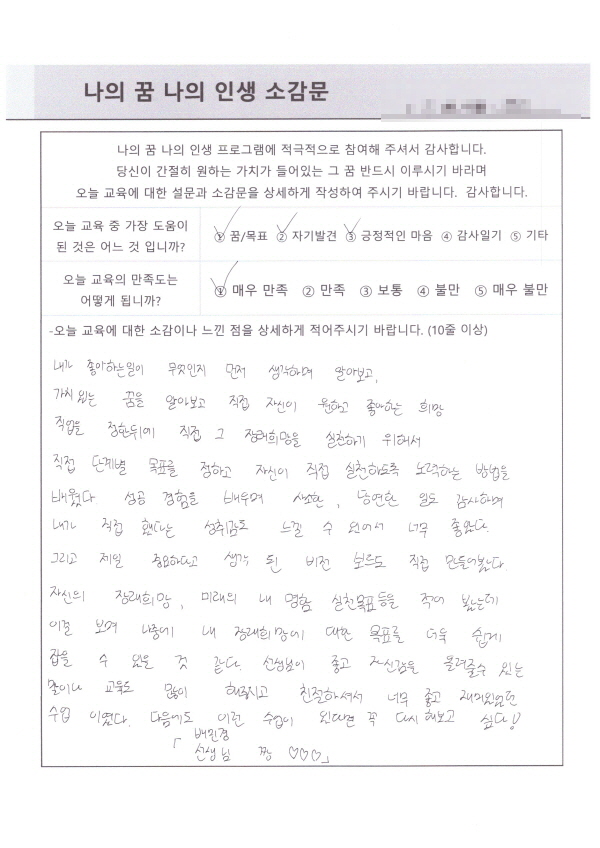 나의 꿈 나의 인생 소감문
나의 꿈 나의 인생 프로그램에 적극적으로 참여해 주셔서 감사합니다.
당신이 간절히 원하는 가치가 들어있는 그 꿈 반드시 이루시기 바라며
오늘 교육에 대한 설문과 소감문을 상세하게 작성하여 주시기 바랍니다. 감사합니다.
오늘 교육 중 가장 도움이
된 것은 어느 것 입니까?
① 꿈/목표 ② 자기발견 ③ 긍정적인 마음 ④ 감사일기 ⑤ 기타
오늘 교육의 만족도는
어떻게 됩니까?
① 매우 만족 ② 만족 ③ 보통 ④ 불만 ⑤ 매우 불만
-오늘 교육에 대한 소감이나 느낀 점을 상세하게 적어주시기 바랍니다. (10줄 이상)
내가 좋아하는일이 무엇인지 먼저 생각하며 알아보고,
가치있는 꿈을 알아보고 직접 자신이 원하고 좋아하는 희망
직업을 정한뒤에 직접 그 장래희망을 실천하기 위해서
직접 단계별 목표를 정하고 자신이 직접 실천하도록 노력하는 방법을
배웠다. 성공 경험을 배우며 사소한, 당연한 일도 감사하며
내가 직접 했다는 성취감도 느낄 수 있어서 너무 좋았다.
그리고 제일 중요하다고 생각 된 비전 보드도 직접 만들어봤다.
자신의 장래희망, 미래의 내 명함 실천목표등을 적어 봤는데
이걸 보며 나중에 내 장래희망에 대한 목표를 더욱 쉽게
잡을 수 있을 것 같다. 선생님이 좋고 자신감을 올려줄수 있는
말이나 교육도 많이 해주시고 친절하셔서 너무 좋고 재미있었던
수업 이였다. 다음에도 이런 수업이 있다면 꼭 다시 해보고 싶다!
「배민경
선생님 짱 ♡♡♡」